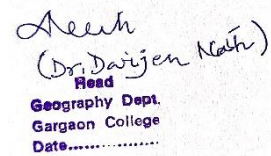 (Dr. Darjen Nath)
Head
Geography Dept.
Gargaon College
Date..................